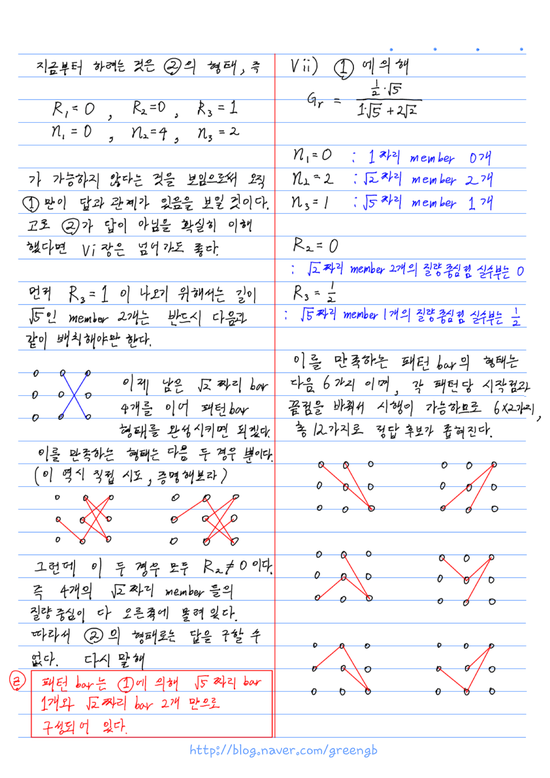 지금부터 하려는 것은 ②의 형태, 즉
R₁=0 , R₂=0 , R₃=1
n₁=0 , n₂=4 , n₃=2
가 가능하지 않다는 것을 보임으로써 오직
①만이 답과 관계가 있음을 보일 것이다.
고로 ②가 답이 아님을 확실히 이해
했다면 Vi장은 넘어가도 좋다.
먼저 R₃=1 이 나오기 위해서는 길이
√5인 member 2개는 반드시 다음과
같이 배치해야만 한다.
이제 남은 √2짜리 bar
4개를 이어 패턴bar
형태를 완성시키면 되겠다.
이를 만족하는 형태는 다음 두 경우 뿐이다.
(이 역시 직접 시도, 증명해보라)
그런데 이 두 경우 모두 R₂≠0 이다.
즉 4개의 √2짜리 member들의
질량중심이 다 오른쪽에 쏠려있다.
따라서 ②의 형태로는 답을 구할 수
없다. 다시 말해
패턴 bar는 ①에 의해 √5짜리 bar
1개와 √2짜리 bar 2개 만으로
구성되어 있다.
Vii) ①에 의해
Gr = (½·√5)/(1·√5+2√2)
n₁=0 : 1짜리 member 0개
n₂=2 : √2짜리 member 2개
n₃=1 : √5짜리 member 1개
R₂=0
: √2짜리 member 2개의 질량중심점 실수부는 0
R₃=½
: √5짜리 member 1개의 질량중심점 실수부는 ½
이를 만족하는 패턴 bar의 형태는
다음 6가지 이며, 각 패턴당 시작점과
끝점을 바꿔서 시행이 가능하므로 6×2가지,
총 12가지로 정답 후보가 좁혀진다.
http://blog.naver.com/greengb